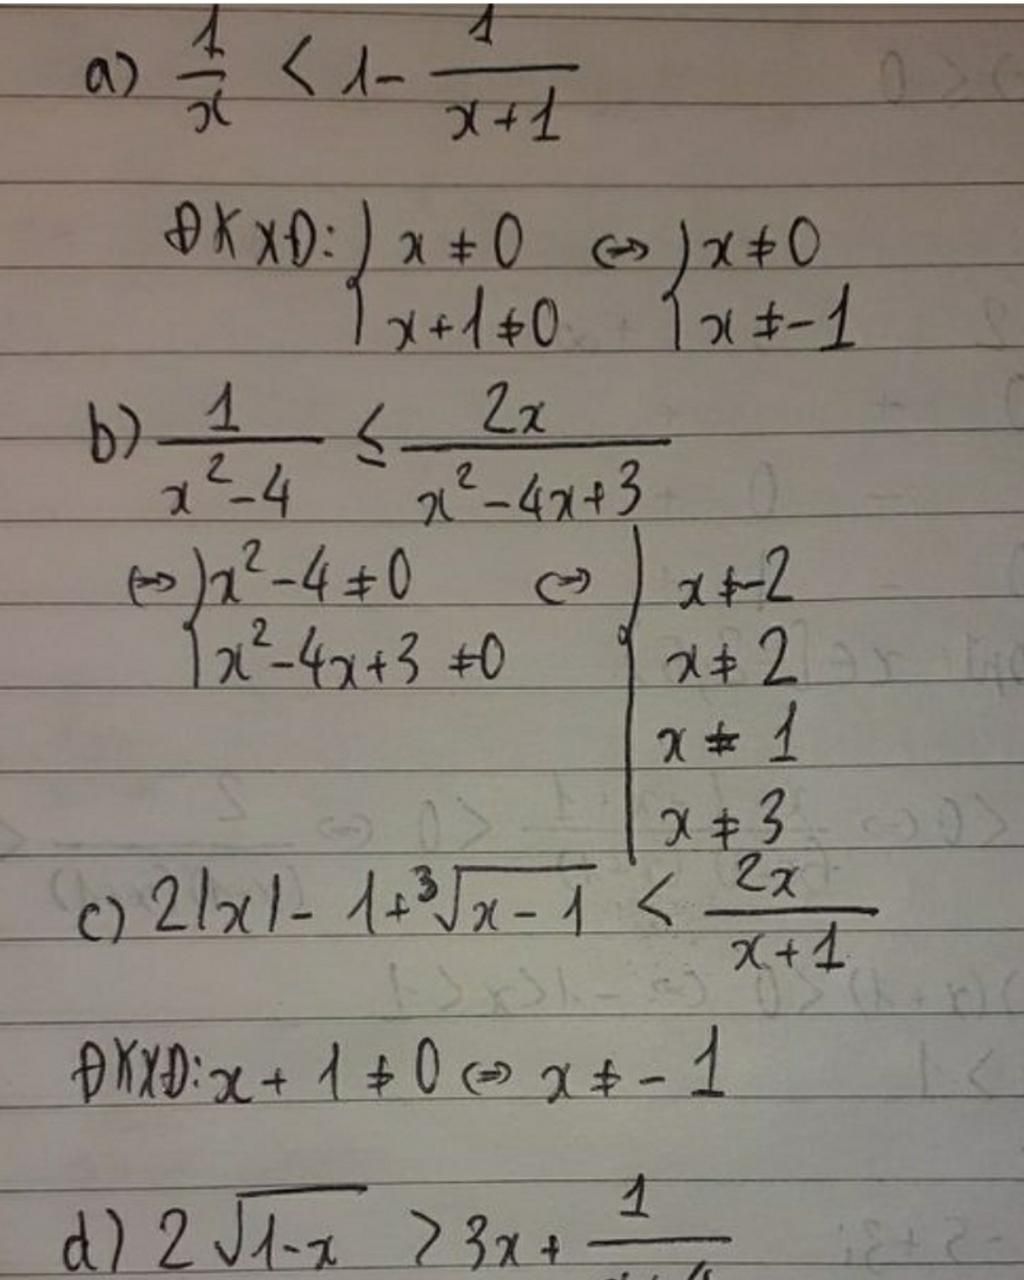 a) 1/x < 1 - 1/(x+1)
ĐKXĐ: { x ≠ 0 ⇔ { x ≠ 0
x+1 ≠ 0 x ≠ -1
b) 1/(x²-4) ≤ 2x/(x²-4x+3)
⇔ { x²-4 ≠ 0 ⇔ { x ≠ -2
x²-4x+3 ≠ 0 x ≠ 2
x ≠ 1
x ≠ 3
c) 2|x| - 1 + ³√(x-1) < 2x/(x+1)
ĐKXĐ: x + 1 ≠ 0 ⇔ x ≠ -1
d) 2√(1-x) > 3x + 1/